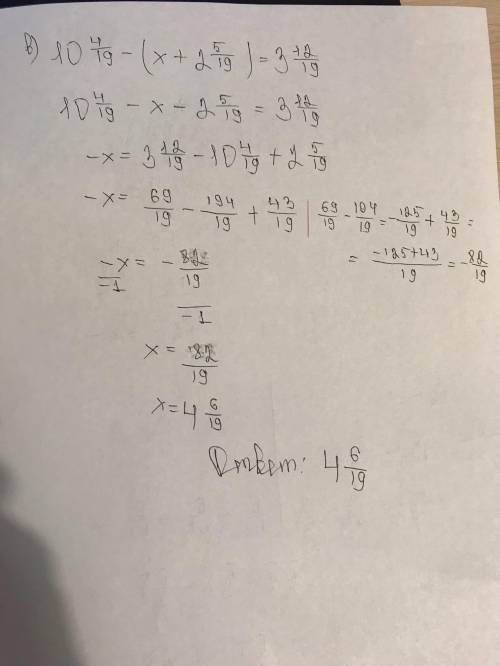 в) 10 4/19 - (x + 2 5/19) = 3 12/19
10 4/19 - x - 2 5/19 = 3 12/19
-x = 3 12/19 - 10 4/19 + 2 5/19
-x = 69/19 - 194/19 + 43/19 | 69/19 - 194/19 = -125/19 + 43/19 =
= (-125+43)/19 = -82/19
-x/-1 = -82/19/-1
x = 82/19
x = 4 6/19
Ответ: 4 6/19